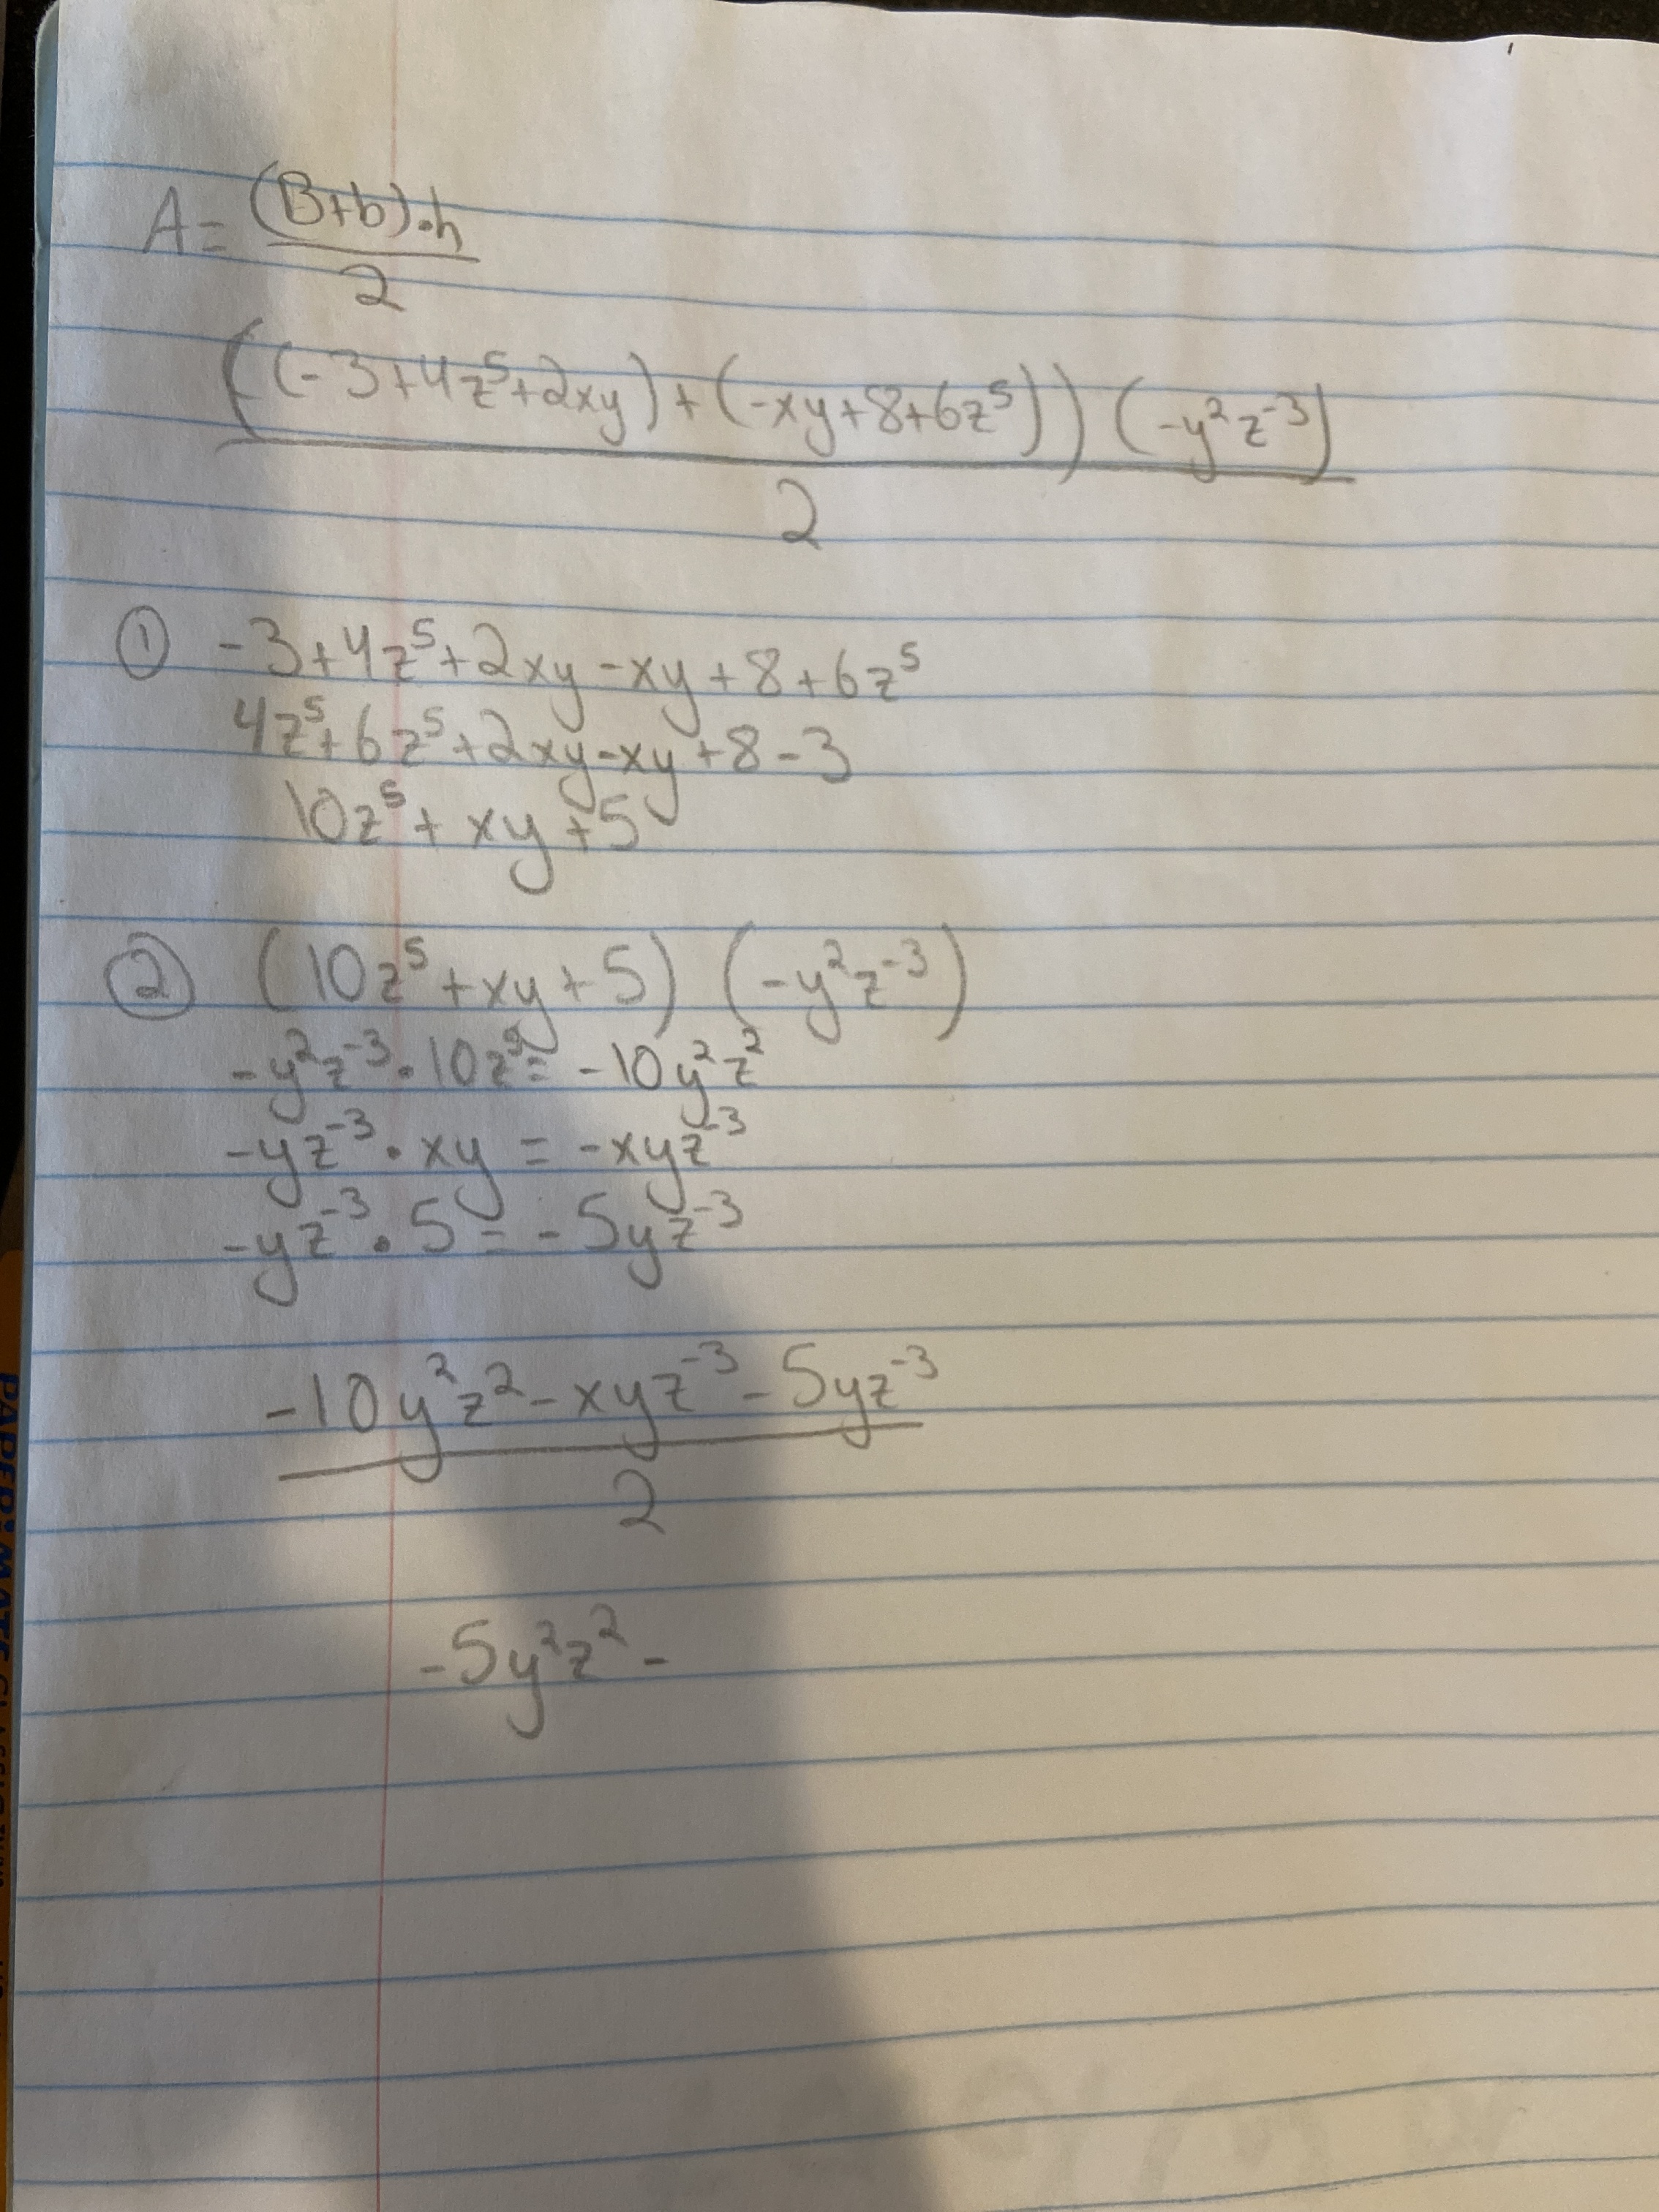 A = (B+b)·h
2
((-3+4z⁵+2xy)+(-xy+8+6z⁵))(-y²z⁻³)
2
① -3+4z⁵+2xy-xy+8+6z⁵
4z⁵+6z⁵+2xy-xy+8-3
10z⁵+xy+5
② (10z⁵+xy+5)(-y²z⁻³)
-y²z⁻³·10z⁵=-10y²z²
-yz⁻³·xy=-xyz⁻³
-yz⁻³·5=-5yz⁻³
-10y²z²-xyz⁻³-5yz⁻³
2
-5y²z²-